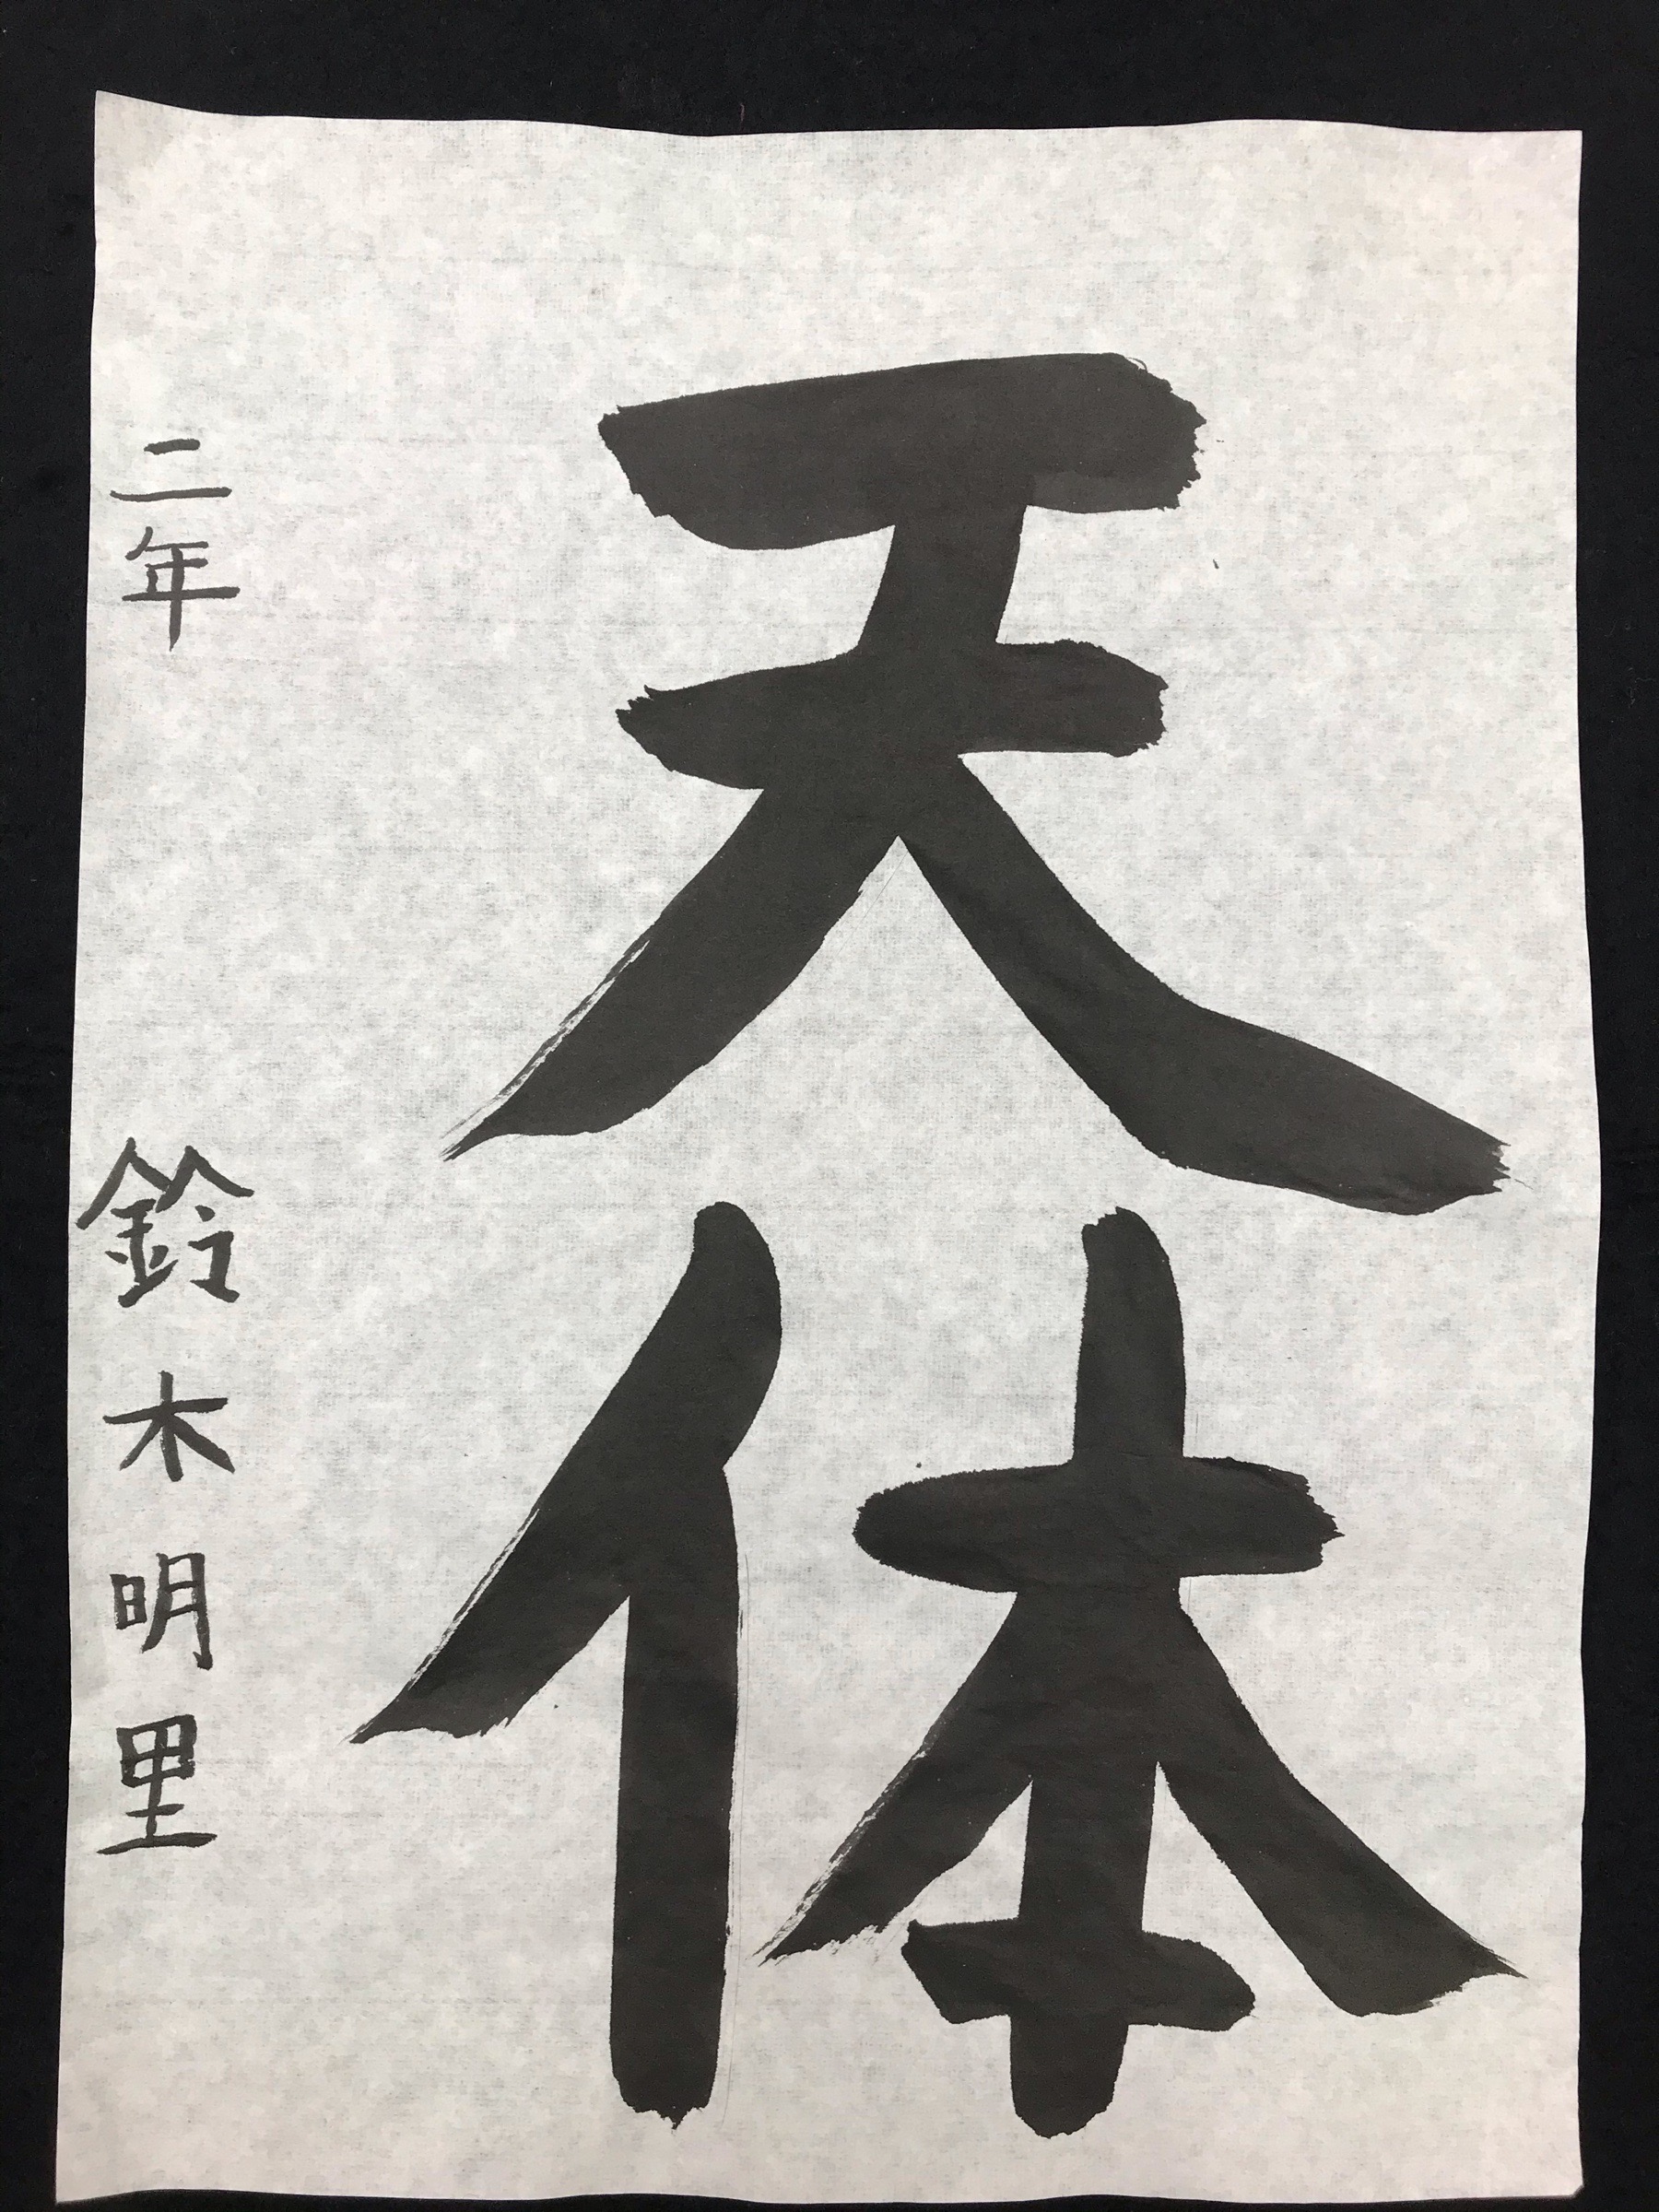 天体
二年 鈴木明里